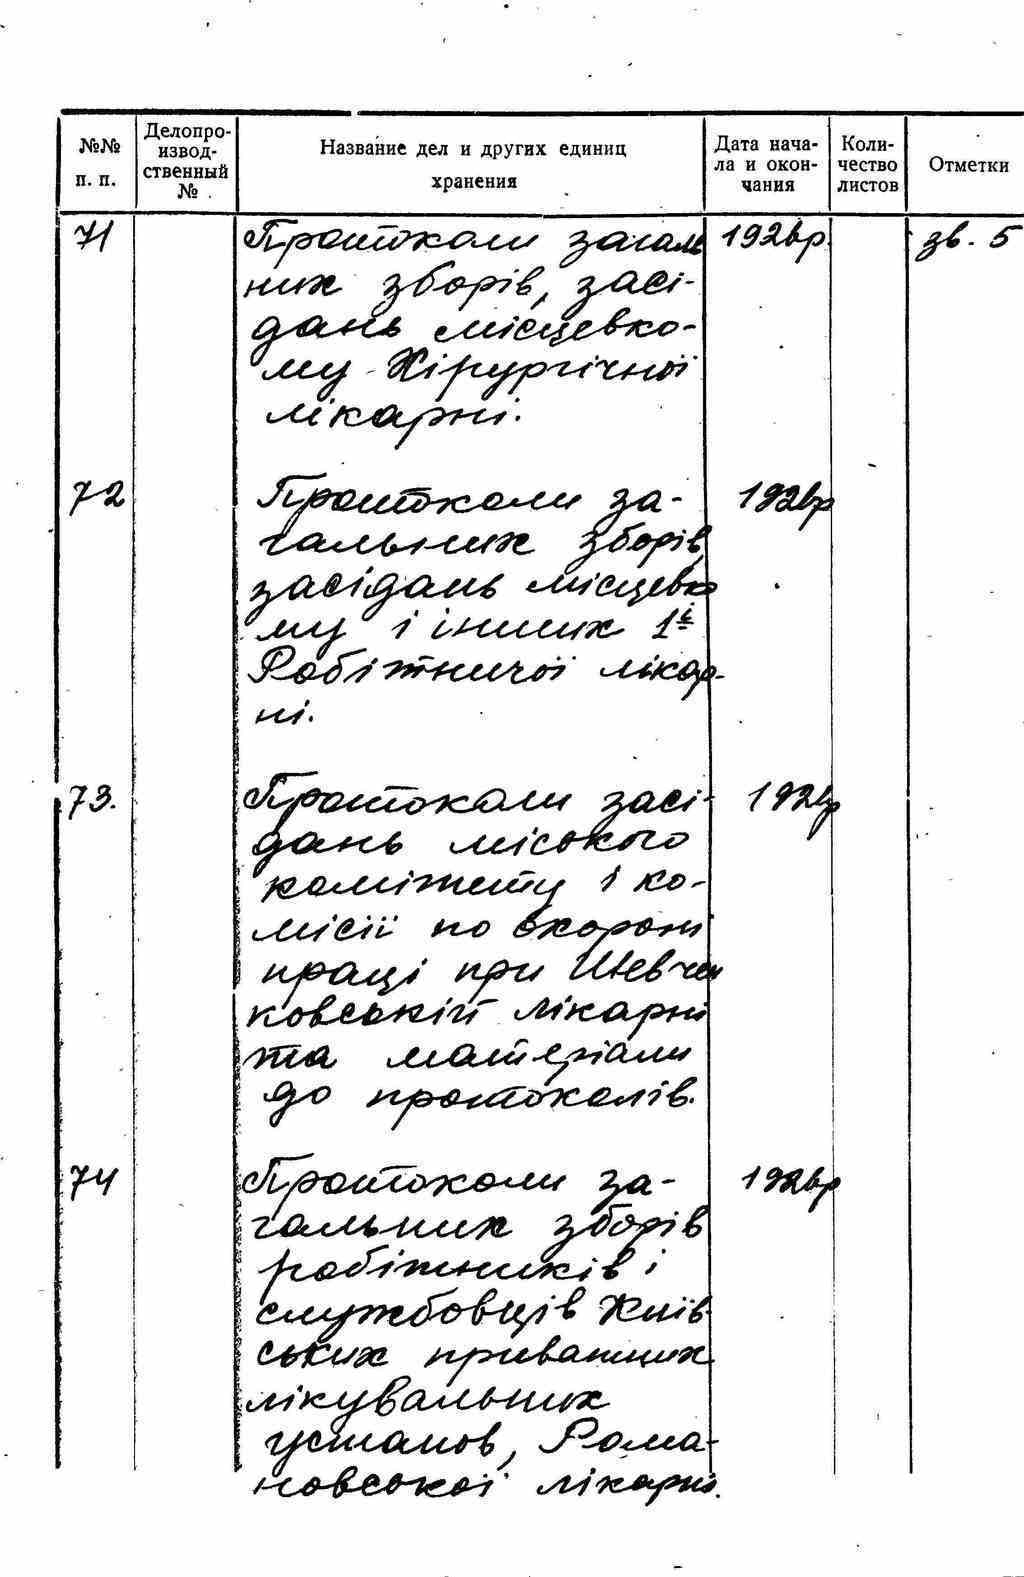 №№ п. п.
Делопро-
извод-
ственный
№
Название дел и других единиц
хранения
Дата нача-
ла и окон-
чания
Коли-
чество
листов
Отметки
71
Протоколи загаль
них зборів, засі-
дань місцевко-
му Хірургічної
лікарні.
зв. 5
72
Протоколи за-
гальних зборів,
засідань місцевко
му і інших 1ї
Робітничої лікар-
ні.
73.
Протоколи засі-
дань міського
комітету і ко-
місії по охороні
праці при Шевчен
ковській лікарні
та матеріали
до протоколів.
74
Протоколи за-
гальних зборів
робітників і
службовців Київ-
ських приватних
лікувальних
установ, Рома-
новської лікарні.